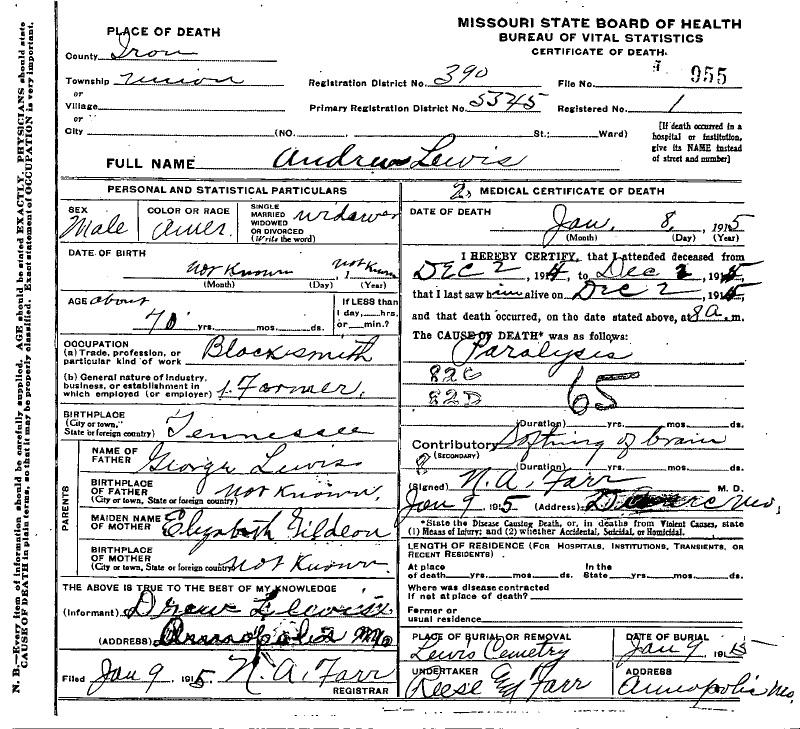 MISSOURI STATE BOARD OF HEALTH
BUREAU OF VITAL STATISTICS
CERTIFICATE OF DEATH.
PLACE OF DEATH
County Iron
Township Union
or
Village
or
City (NO. St.: Ward)
Registration District No. 390 File No. 955
Primary Registration District No. 5345 Registered No. 1
[If death occurred in a
hospital or institution,
give its NAME instead
of street and number]
FULL NAME Andrew Lewis
PERSONAL AND STATISTICAL PARTICULARS
SEX
Male
COLOR OR RACE
Amer.
SINGLE
MARRIED
WIDOWED
OR DIVORCED
(Write the word)
widower
DATE OF BIRTH
not Known not Known
(Month) (Day) (Year)
AGE about
70 yrs. mos. ds.
If LESS than
1 day, hrs.
or min.?
OCCUPATION
(a) Trade, profession, or
particular kind of work
Blacksmith
(b) General nature of industry,
business, or establishment in
which employed (or employer)
Farmer.
BIRTHPLACE
(City or town,
State or foreign country)
Tennessee
PARENTS
NAME OF
FATHER
George Lewis
BIRTHPLACE
OF FATHER
(City or town, State or foreign country)
not Known.
MAIDEN NAME
OF MOTHER
Elizabeth Gildeon
BIRTHPLACE
OF MOTHER
(City or town, State or foreign country)
not Known.
THE ABOVE IS TRUE TO THE BEST OF MY KNOWLEDGE
(Informant) Drew Lewis
(ADDRESS) Annopolis Mo
Filed Jan 9 1915 N. A. Farr
REGISTRAR
2. MEDICAL CERTIFICATE OF DEATH
DATE OF DEATH
Jan. 8, 1915
(Month) (Day) (Year)
I HEREBY CERTIFY, that I attended deceased from
Dec 2 1914, to Dec 2 1914
that I last saw him alive on Dec 2, 1914
and that death occurred, on the date stated above, at 8 a.m.
The CAUSE OF DEATH* was as follows:
Paralysis
82C
82D 65
(Duration) yrs. mos. ds.
Contributory Softning of brain
(SECONDARY)
8 (Duration) yrs. mos. ds.
(Signed) N. A. Farr M. D.
Jan 9 1915 (Address) Mo,
*State the Disease Causing Death, or, in deaths from Violent Causes, state
(1) Means of Injury; and (2) whether Accidental, Suicidal, or Homicidal.
LENGTH OF RESIDENCE (FOR HOSPITALS, INSTITUTIONS, TRANSIENTS, OR
RECENT RESIDENTS).
At place
of death yrs. mos. ds.
In the
State yrs. mos. ds.
Where was disease contracted
if not at place of death?
Former or
usual residence
PLACE OF BURIAL OR REMOVAL
Lewis Cemetry
DATE OF BURIAL
Jan 9 1915
UNDERTAKER
Reese Ed Farr
ADDRESS
Annopolis Mo.
N. B.—Every item of information should be carefully supplied. AGE should be stated EXACTLY. PHYSICIANS should state
CAUSE OF DEATH in plain terms, so that it may be properly classified. Exact statement of OCCUPATION is very important.